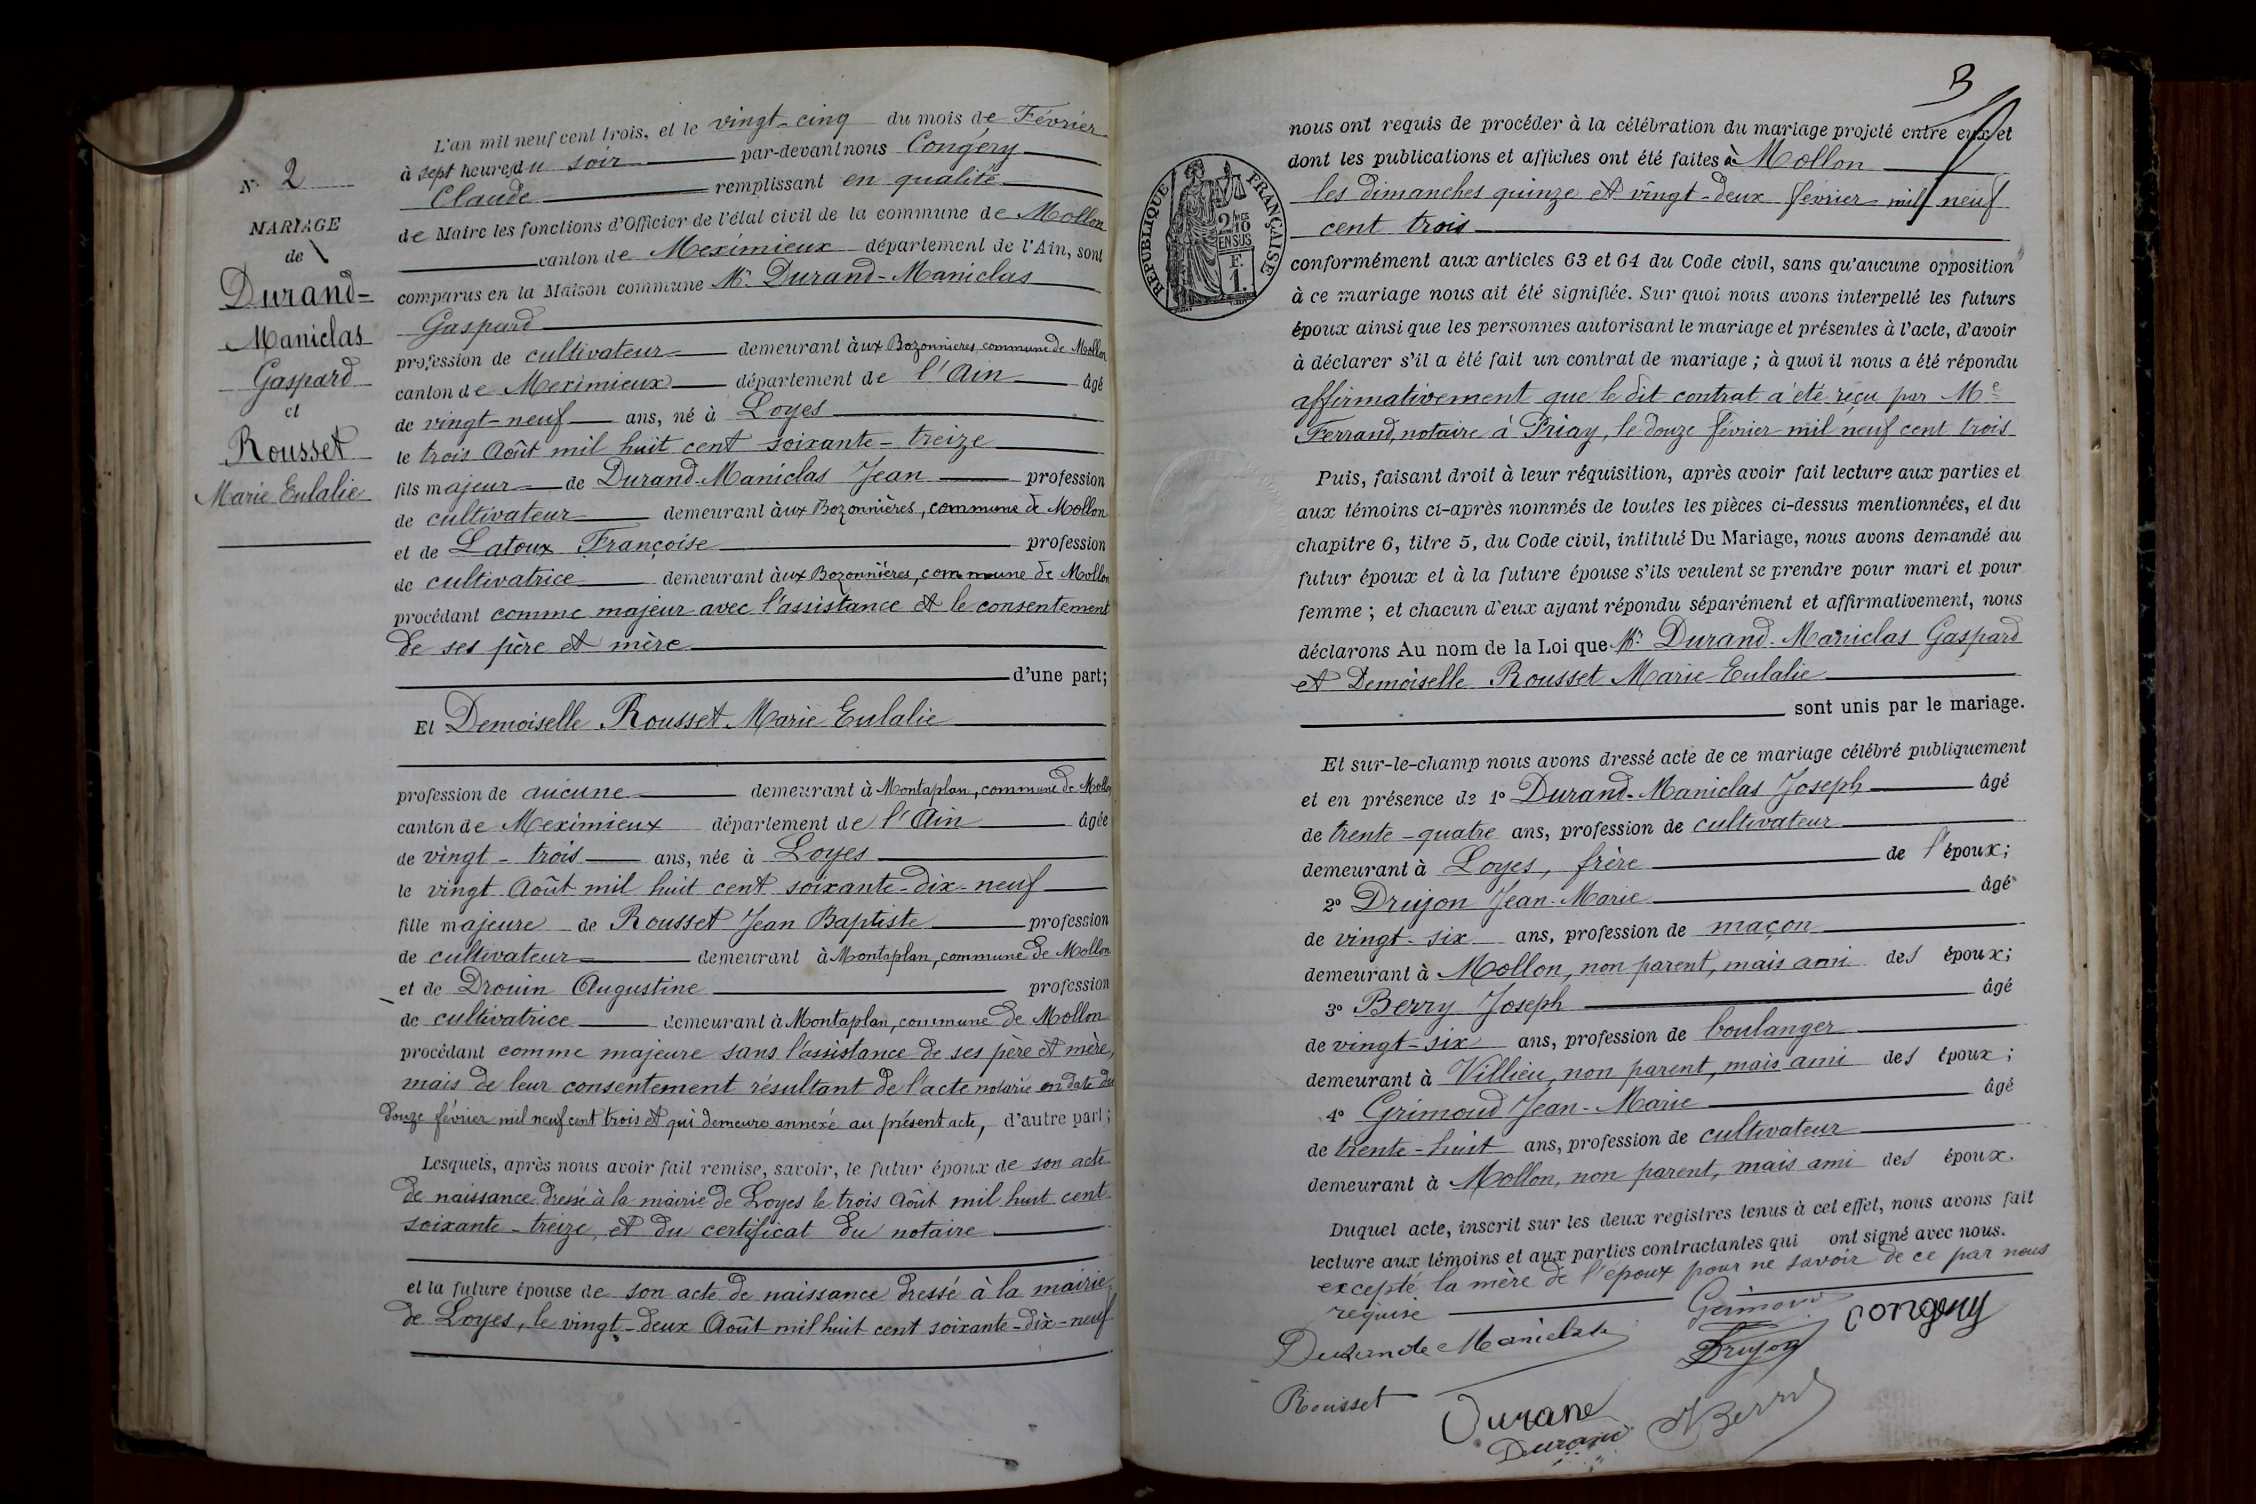 N° 2
MARIAGE
de
Durand-
Maniclas
Gaspard
et
Rousset
Marie Eulalie
L'an mil neuf cent trois, et le vingt-cinq du mois de Février
à sept heures du soir par-devant nous Congény
Claude remplissant en qualité
de Maire les fonctions d'Officier de l'état civil de la commune de Mollon
canton de Meximieux département de l'Ain, sont
comparus en la Maison commune Mr. Durand-Maniclas
Gaspard
profession de cultivateur demeurant àux Bozonnieres, commune de Mollon
canton de Meximieux département de l'Ain âgé
de vingt-neuf ans, né à Loyes
le trois Août mil huit cent soixante-treize
fils majeur de Durand-Maniclas Jean profession
de cultivateur demeurant àux Bozonnières, commune de Mollon
et de Latoux Françoise profession
de cultivatrice demeurant àux Bozonnières, commune de Mollon
procédant comme majeur avec l'assistance et le consentement
de ses père et mère
d'une part;
Et Demoiselle Rousset Marie Eulalie
profession de aucune demeurant à Montaplan, commune de Mollon
canton de Meximieux département de l'Ain âgée
de vingt-trois ans, née à Loyes
le vingt Août mil huit cent soixante-dix-neuf
fille majeure de Rousset Jean Baptiste profession
de cultivateur demeurant à Montaplan, commune de Mollon
et de Drouin Augustine profession
de cultivatrice demeurant à Montaplan, commune de Mollon
procédant comme majeure sans l'assistance de ses père et mère,
mais de leur consentement résultant de l'acte notarié en date du
douze février mil neuf cent trois et qui demeure annexé au présent acte, d'autre part;
Lesquels, après nous avoir fait remise, savoir, le futur époux de son acte
de naissance dressé à la mairie de Loyes le trois Août mil huit cent
soixante-treize, et du certificat du notaire
et la future épouse de son acte de naissance dressé à la mairie
de Loyes, le vingt-deux Août mil huit cent soixante-dix-neuf
3
nous ont requis de procéder à la célébration du mariage projeté entre eux et
dont les publications et affiches ont été faites à Mollon
les dimanches quinze et vingt-deux février mil neuf
cent trois
RÉPUBLIQUE FRANÇAISE
2/10
EN SUS
F.
1.
conformément aux articles 63 et 64 du Code civil, sans qu'aucune opposition
à ce mariage nous ait été signifiée. Sur quoi nous avons interpellé les futurs
époux ainsi que les personnes autorisant le mariage et présentes à l'acte, d'avoir
à déclarer s'il a été fait un contrat de mariage; à quoi il nous a été répondu
affirmativement que le dit contrat a été reçu par Me
Ferrand, notaire à Priay, le douze février mil neuf cent trois
Puis, faisant droit à leur réquisition, après avoir fait lecture aux parties et
aux témoins ci-après nommés de toutes les pièces ci-dessus mentionnées, et du
chapitre 6, titre 5, du Code civil, intitulé Du Mariage, nous avons demandé au
futur époux et à la future épouse s'ils veulent se prendre pour mari et pour
femme; et chacun d'eux ayant répondu séparément et affirmativement, nous
déclarons Au nom de la Loi que Mr. Durand-Maniclas Gaspard
et Demoiselle Rousset Marie Eulalie
sont unis par le mariage.
Et sur-le-champ nous avons dressé acte de ce mariage célébré publiquement
et en présence de 1° Durand-Maniclas Joseph âgé
de trente-quatre ans, profession de cultivateur
demeurant à Loyes, frère de l'époux;
2° Drujon Jean-Marie âgé
de vingt-six ans, profession de maçon
demeurant à Mollon, non parent, mais ami des époux;
3° Berry Joseph âgé
de vingt-six ans, profession de boulanger
demeurant à Villieu, non parent, mais ami des époux;
4° Grimoud Jean-Marie âgé
de trente-huit ans, profession de cultivateur
demeurant à Mollon, non parent, mais ami des époux.
Duquel acte, inscrit sur les deux registres tenus à cet effet, nous avons fait
lecture aux témoins et aux parties contractantes qui ont signé avec nous.
excepté la mère de l'époux pour ne savoir de ce par nous
requise
Grimoud
Congeny
Durande Maniclas
Drujon
Rousset
Durane
Berry
Durand